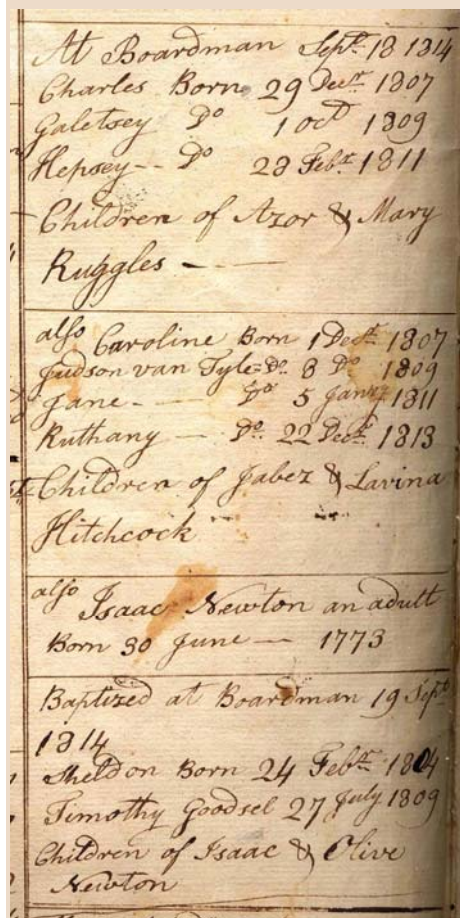 At Boardman Sept.r 18 1814
Charles Born 29 Dec.r 1807
Galetsey D.o 1 oct 1809
Hepsey -- D.o 28 Feb.r 1811
Children of Azor & Mary
Ruggles - —
also Caroline Born 1 Dec.r 1807
Judson van Tyle = D.o 8 D.o 1809
Jane - — D.o 5 Jan.ry 1811
Ruthany — D.o 22 Dec.r 1813
Children of Jabez & Lavina
Hitchcock
also Isaac Newton an adult
Born 30 June — 1773
Baptized at Boardman 19 Sept.r
1814
Sheldon Born 24 Feb.r 1804
Timothy Goodsel 27 July 1809
Children of Isaac & Olive
Newton